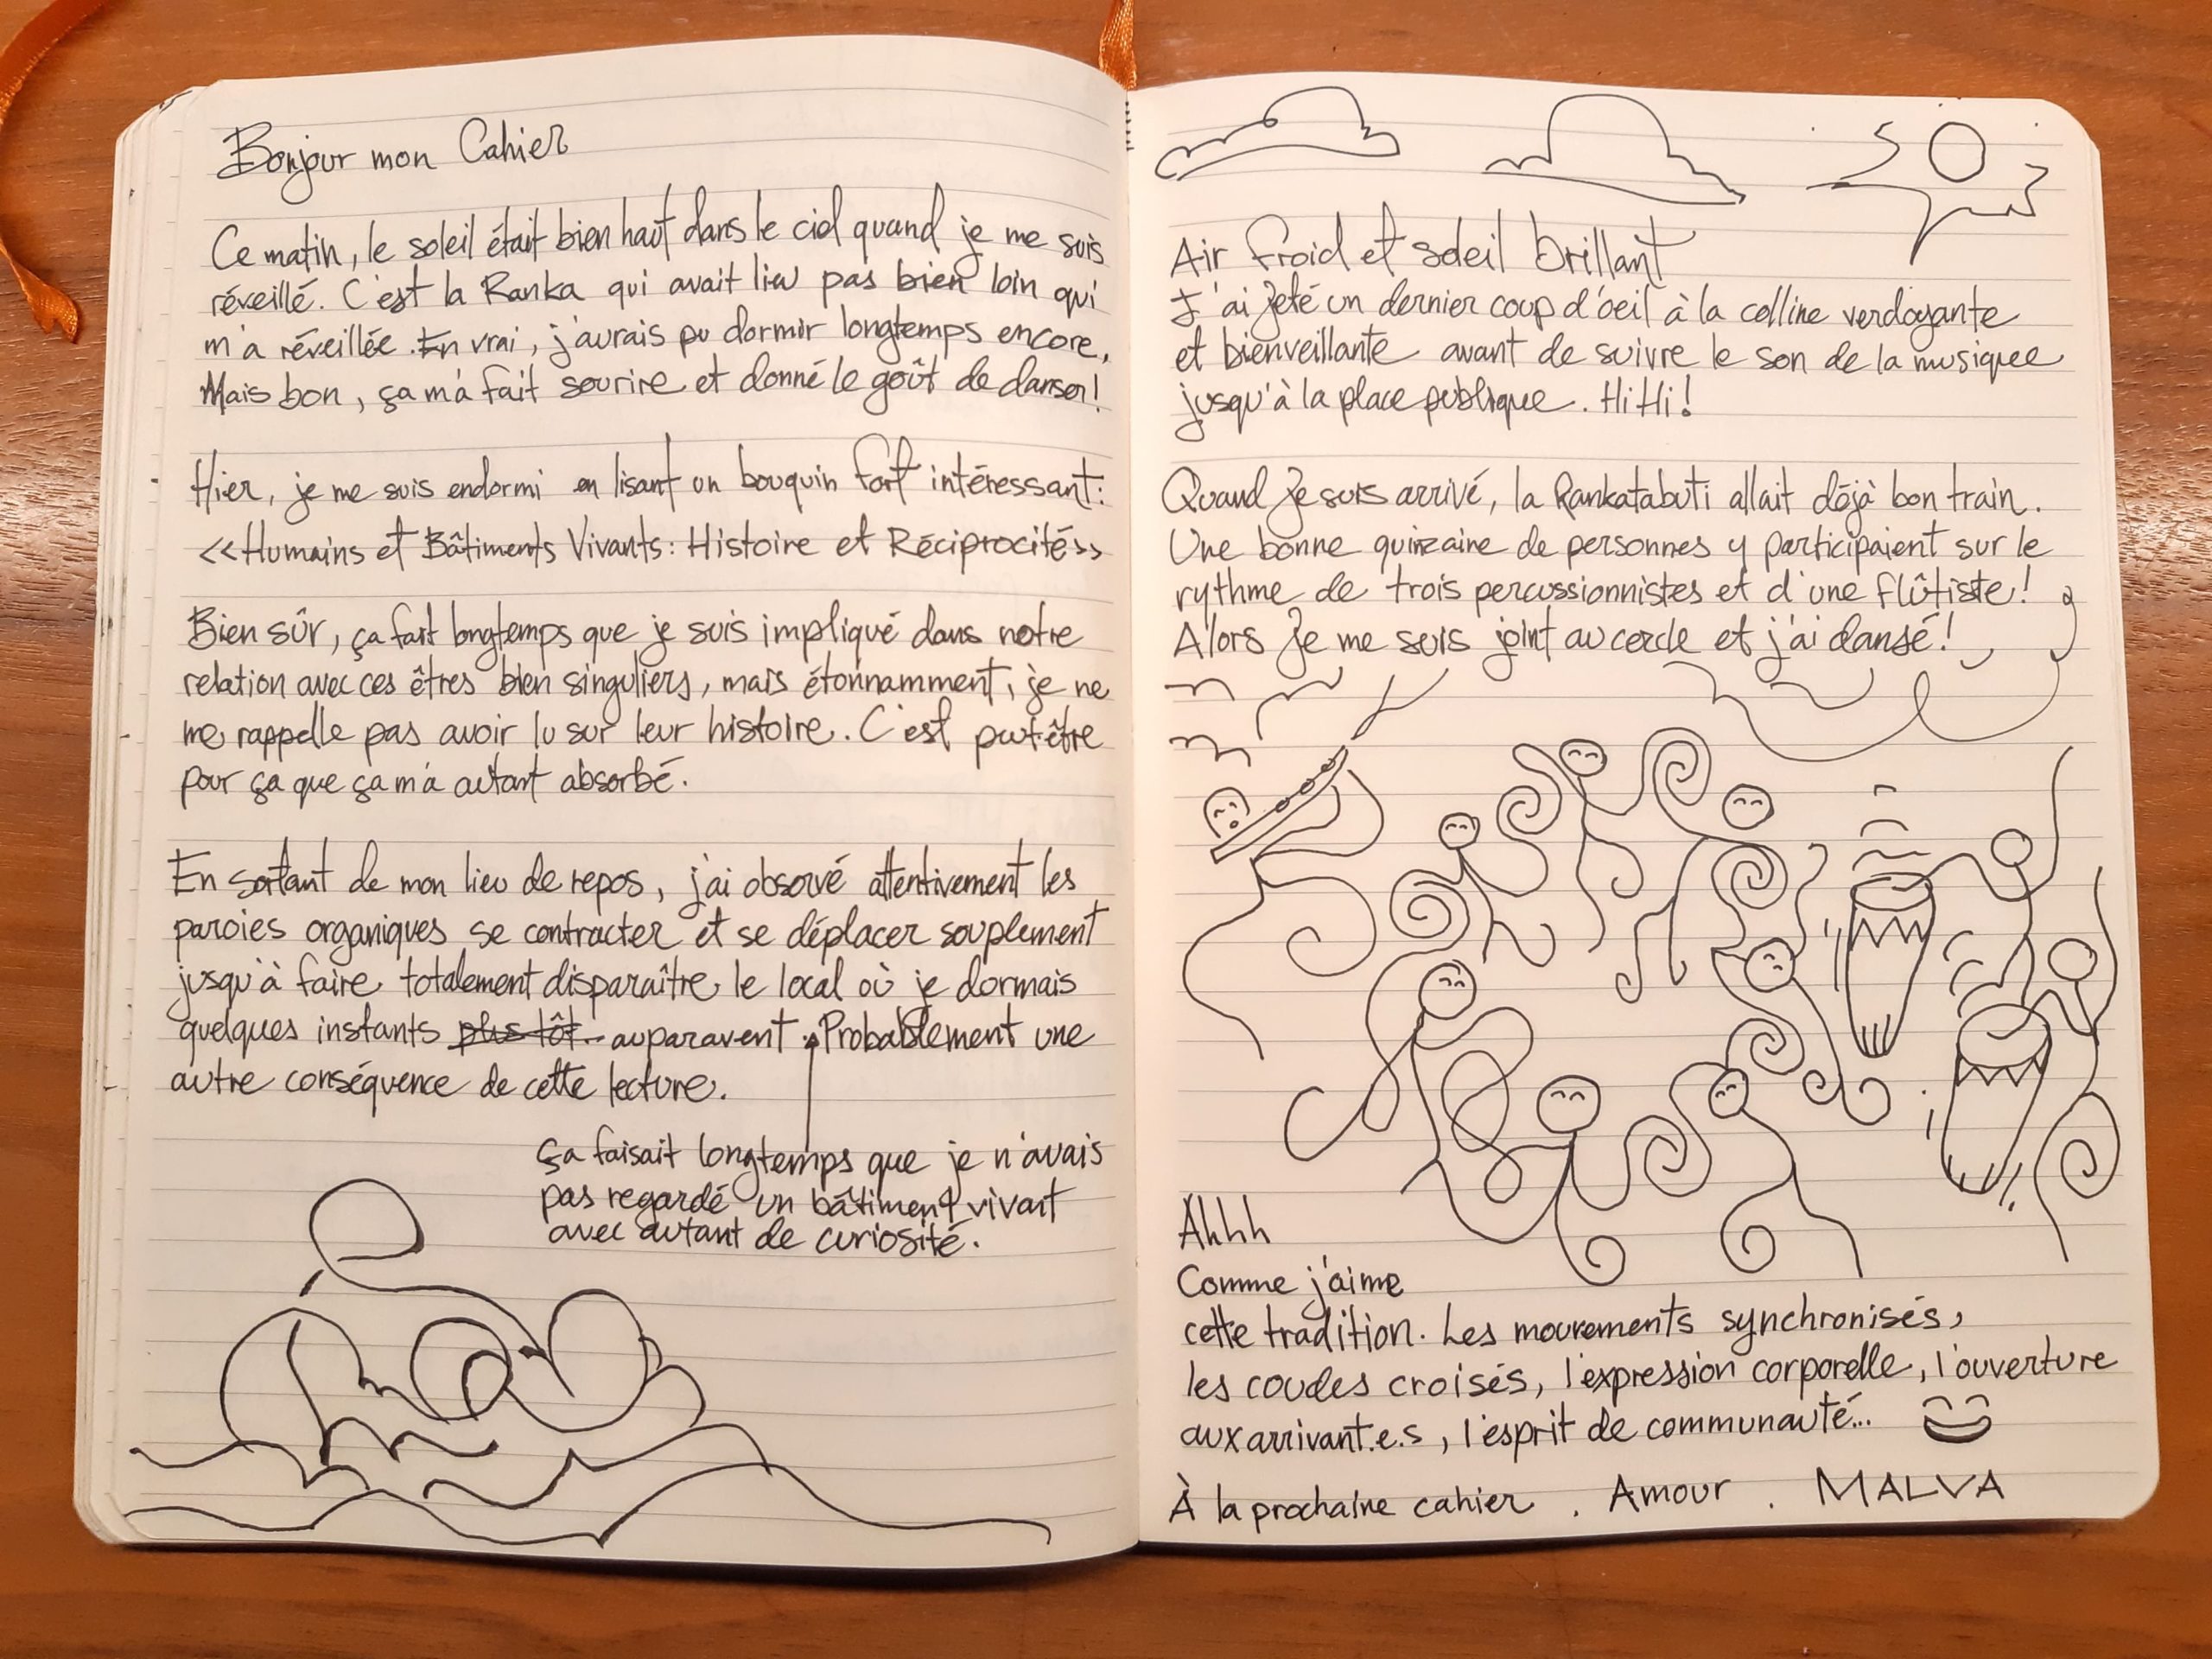 Bonjour mon Cahier
Ce matin, le soleil était bien haut dans le ciel quand je me suis
réveillé. C'est la Ranka qui avait lieu pas bien loin qui
m'a réveillée. En vrai, j'aurais pu dormir longtemps encore,
Mais bon, ça m'a fait sourire et donné le goût de danser!
Hier, je me suis endormi en lisant un bouquin fort intéressant:
<<Humains et Bâtiments Vivants: Histoire et Réciprocité>>
Bien sûr, ça fait longtemps que je suis impliqué dans notre
relation avec ces êtres bien singuliers, mais étonnamment, je ne
me rappelle pas avoir lu sur leur histoire. C'est peut-être
pour ça que ça m'a autant absorbé.
En sortant de mon lieu de repos, j'ai observé attentivement les
paroies organiques se contracter et se déplacer souplement
jusqu'à faire totalement disparaître le local où je dormais
quelques instants plus tôt auparavent. Probablement une
autre conséquence de cette lecture.
Ça faisait longtemps que je n'avais
pas regardé un bâtiment vivant
avec autant de curiosité.
Air froid et soleil brillant
J'ai jeté un dernier coup d'oeil à la colline verdoyante
et bienveillante avant de suivre le son de la musique
jusqu'à la place publique. HiHi!
Quand je suis arrivé, la Rankatabuti allait déjà bon train.
Une bonne quinzaine de personnes y participaient sur le
rythme de trois percussionnistes et d'une flûtiste!
Alors je me suis joint au cercle et j'ai dansé!
Ahhh
Comme j'aime
cette tradition. Les mouvements synchronisés,
les coudes croisés, l'expression corporelle, l'ouverture
aux arrivant.e.s, l'esprit de communauté...
À la prochaine cahier. Amour. MALVA